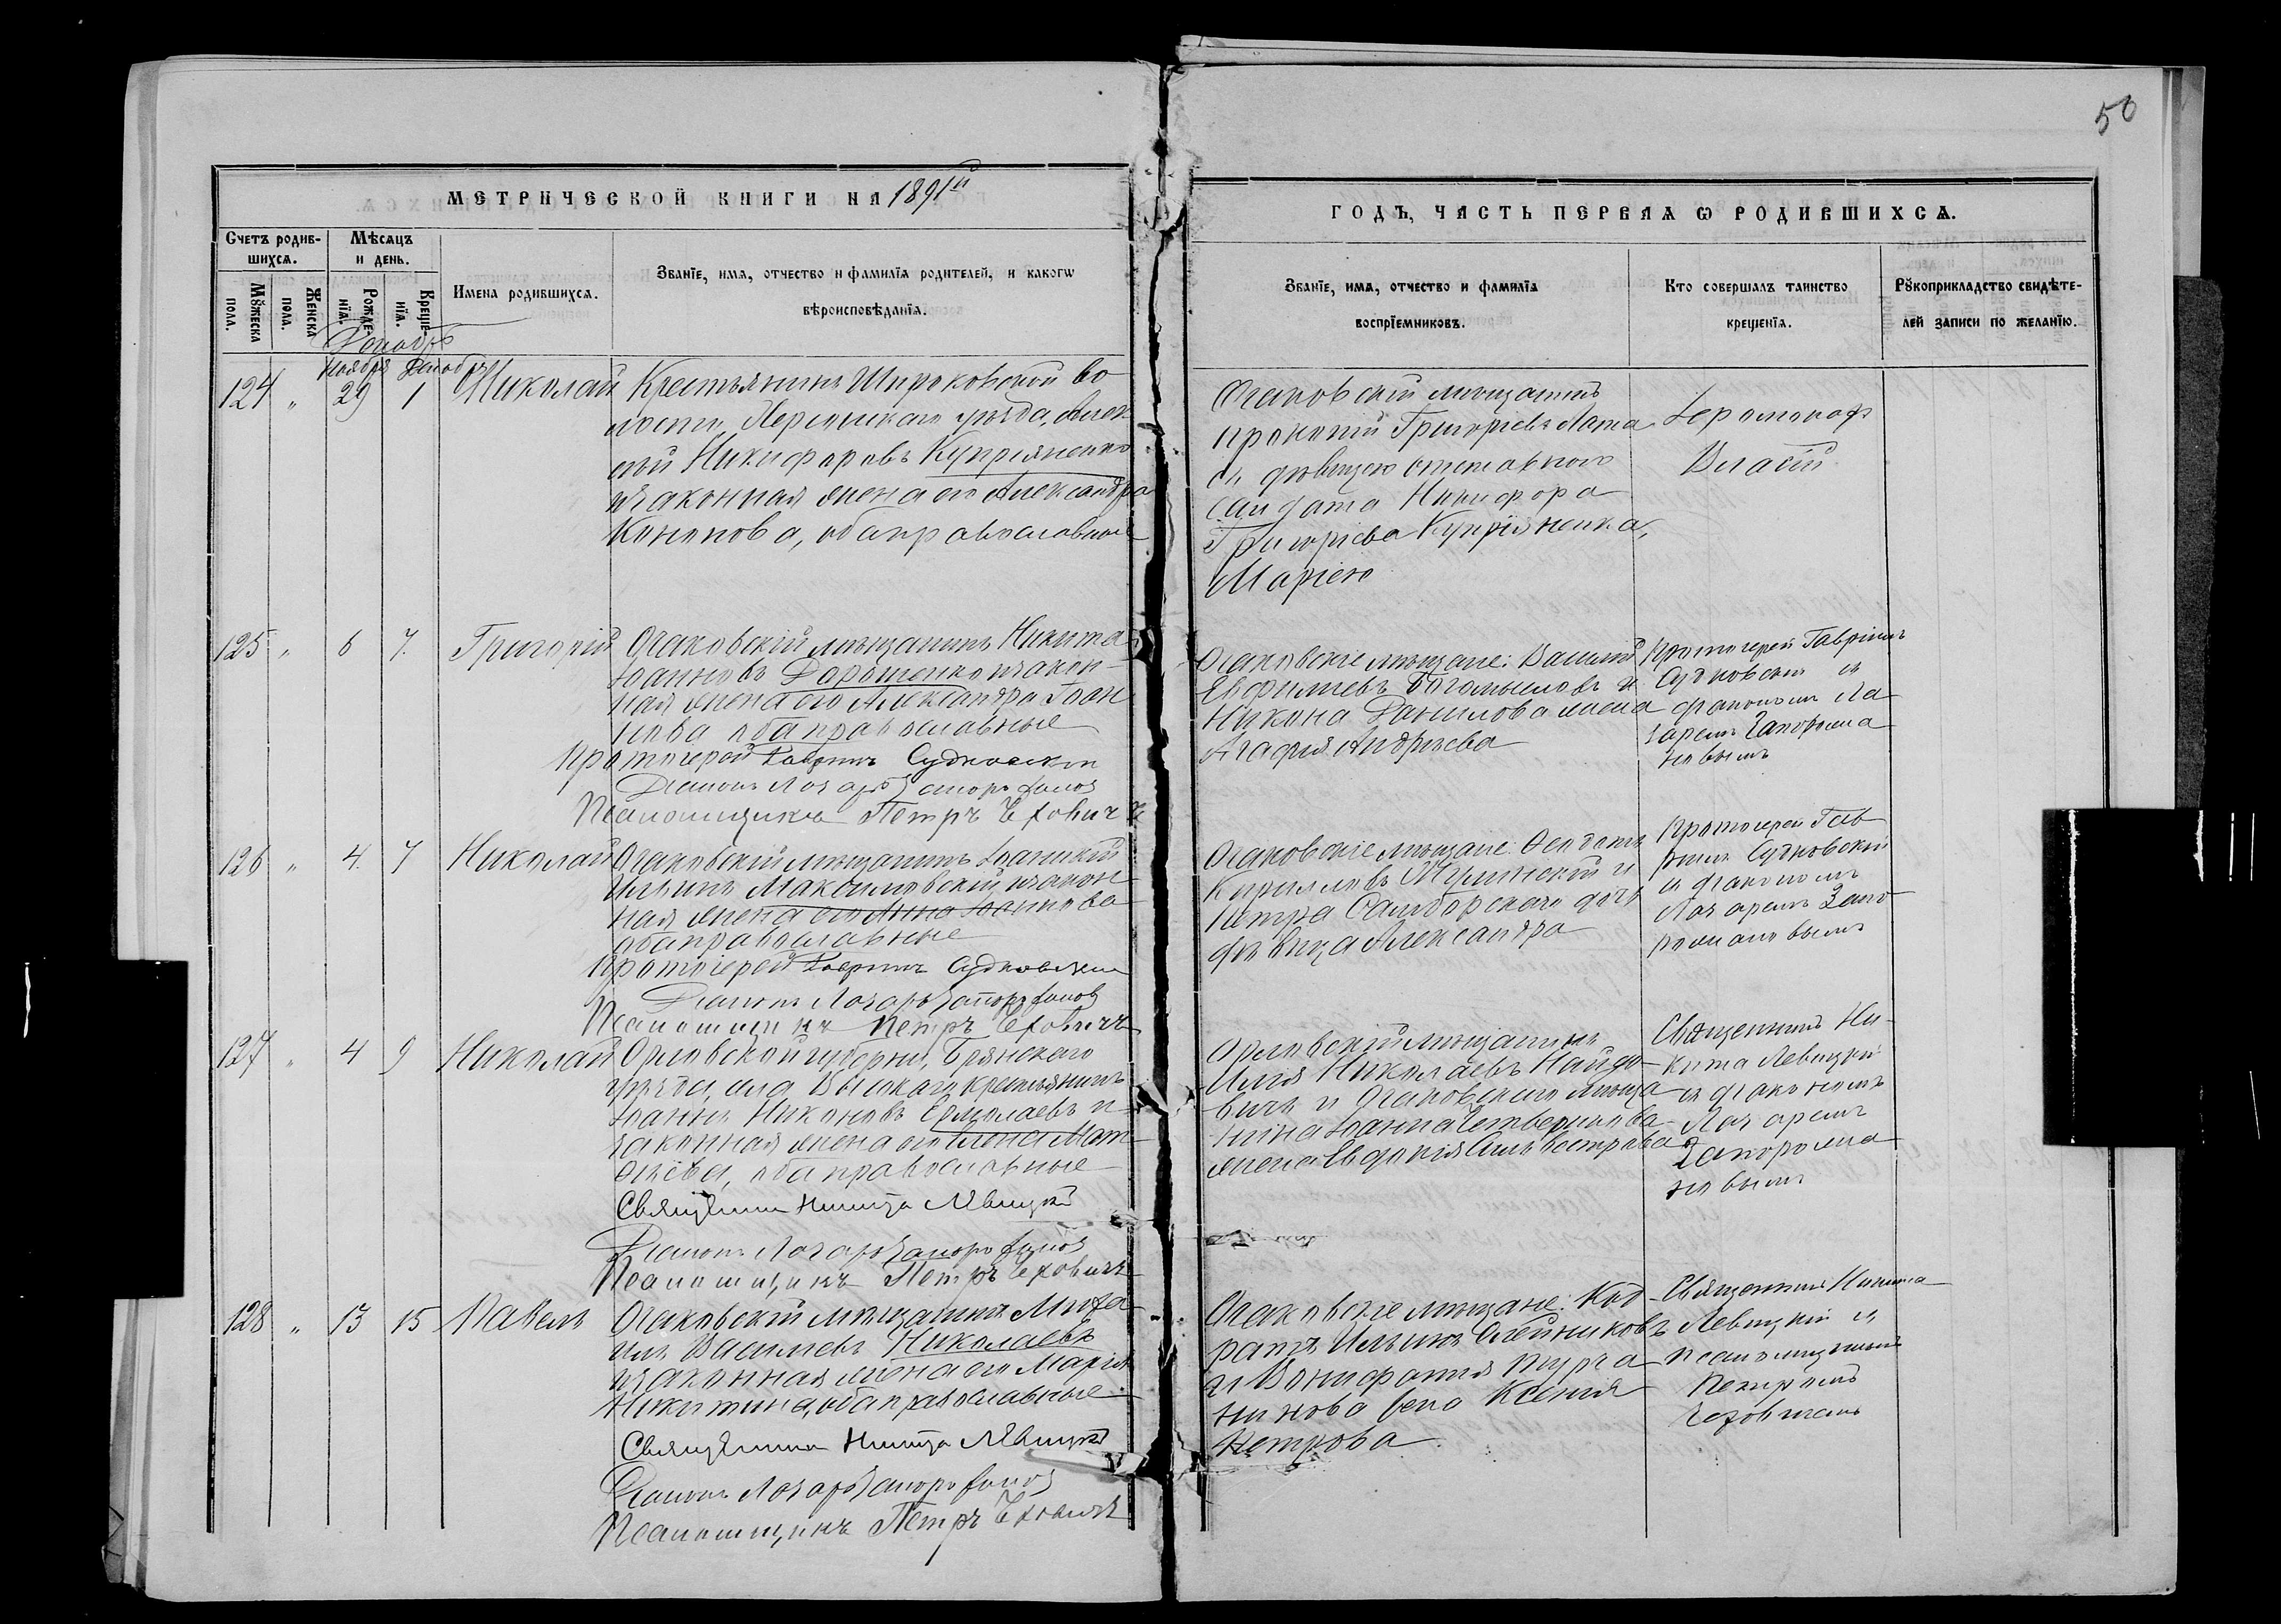 50
МЕТРИЧЕСКОЙ КНИГИ НА 1891й
ГОДЪ, ЧАСТЬ ПЕРВАѦ Ѡ РОДИВШИХСѦ.
Счетъ родив-
шихсѧ.
Мꙋжеска
пола.
Женска
пола.
Мѣсѧцъ
и день.
Рожде-
нїѧ.
Креще-
нїѧ.
Имена родившихсѧ.
Званїе, имѧ, отчество и фамилїѧ родителей, и какогѡ
вѣроисповѣданїѧ.
Званїе, имѧ, отчество и фамилїѧ
воспрїемниковъ.
Кто совершалъ таинство
крещенїѧ.
Рꙋкоприкладство свидѣте-
лей записи по желанїю.
Декабрь
Ноября Декабр
124 " 29 1 Николай
Крестьянинъ Широковской во-
лости, Херсонскаго уѣзда, Алек
сѣй Никифоровъ Купріяненко
и законная жена его Александра
Кононова, оба православные
Очаковскій мѣщанинъ
Прокопій Григорьевъ
съ дѣвицею отставного
солдата Никифора
Григорьева Купріяненка,
Маріею
Іеромонах
Власій
125 " 6 7. Григорій
Очаковскій мѣщанинъ Никита
Іоанновъ Дорошенко и закон-
ная жена его Александра Іоан
нова оба православные
Протоіерей Гавріилъ Судковскій
Діаконъ Лазарь Запорожановъ
Псаломщикъ Петръ Чеховичъ
Очаковскіе мѣщане: Василій
Евфиміевъ Богомысловъ и
Никона Данилова жена
Агафія Андреева
Протоіерей Гавріилъ
Судковскій и
діакономъ Ла-
заремъ
новымъ
126 " 4. 7 Николай
Очаковскій мѣщанинъ Іоанникій
Ильинъ Максимовскій и закон-
ная жена его Анна Іоаннова
оба православные
Протоіерей Гавріилъ Судковскій
Діаконъ Лазарь
Псаломщикъ Петръ Чеховичъ
Очаковскіе мѣщане: Ѳеодотъ
Кирилловъ и
Петра Самборскаго дочь
дѣвица Александра
Протоіерей Гав
ріилъ Судковскій
и діакономъ
Лазаремъ Запо
127 " 4 9 Николай
Орловской губерніи, Брянскаго
уѣзда, села крестьянинъ
Іоаннъ Никоновъ Ермолаевъ и
законная жена его Елена Мат-
ѳѣева, оба православные
Священникъ Никита Левицкій
Діаконъ Лазарь
Псаломщикъ Петръ Чеховичъ
Орловскій мѣщанинъ
Илія Николаевъ Найдо-
вичъ и Очаковскаго мѣща
нина Іоанна Четверикова
жена Евдокія Сильвестрова
Священникъ Ни-
кита Левицкій
и діакономъ
Лазаремъ
Запорожа
новымъ
128 " 13 15 Павелъ
Очаковскій мѣщанинъ Миха-
илъ Васильевъ Николаевъ
и законная жена его Марія
Никитина, оба православные.
Священникъ Никита Левицкій
Діаконъ Лазарь
Псаломщикъ Петръ Чеховичъ
Очаковскіе мѣщане: Код-
ратъ Ильинъ Олейниковъ
и Вонифатія
жена Ксенія
Петрова
Священникъ Никита
Левицкій и
псаломщикомъ
Петромъ
Чеховичемъ